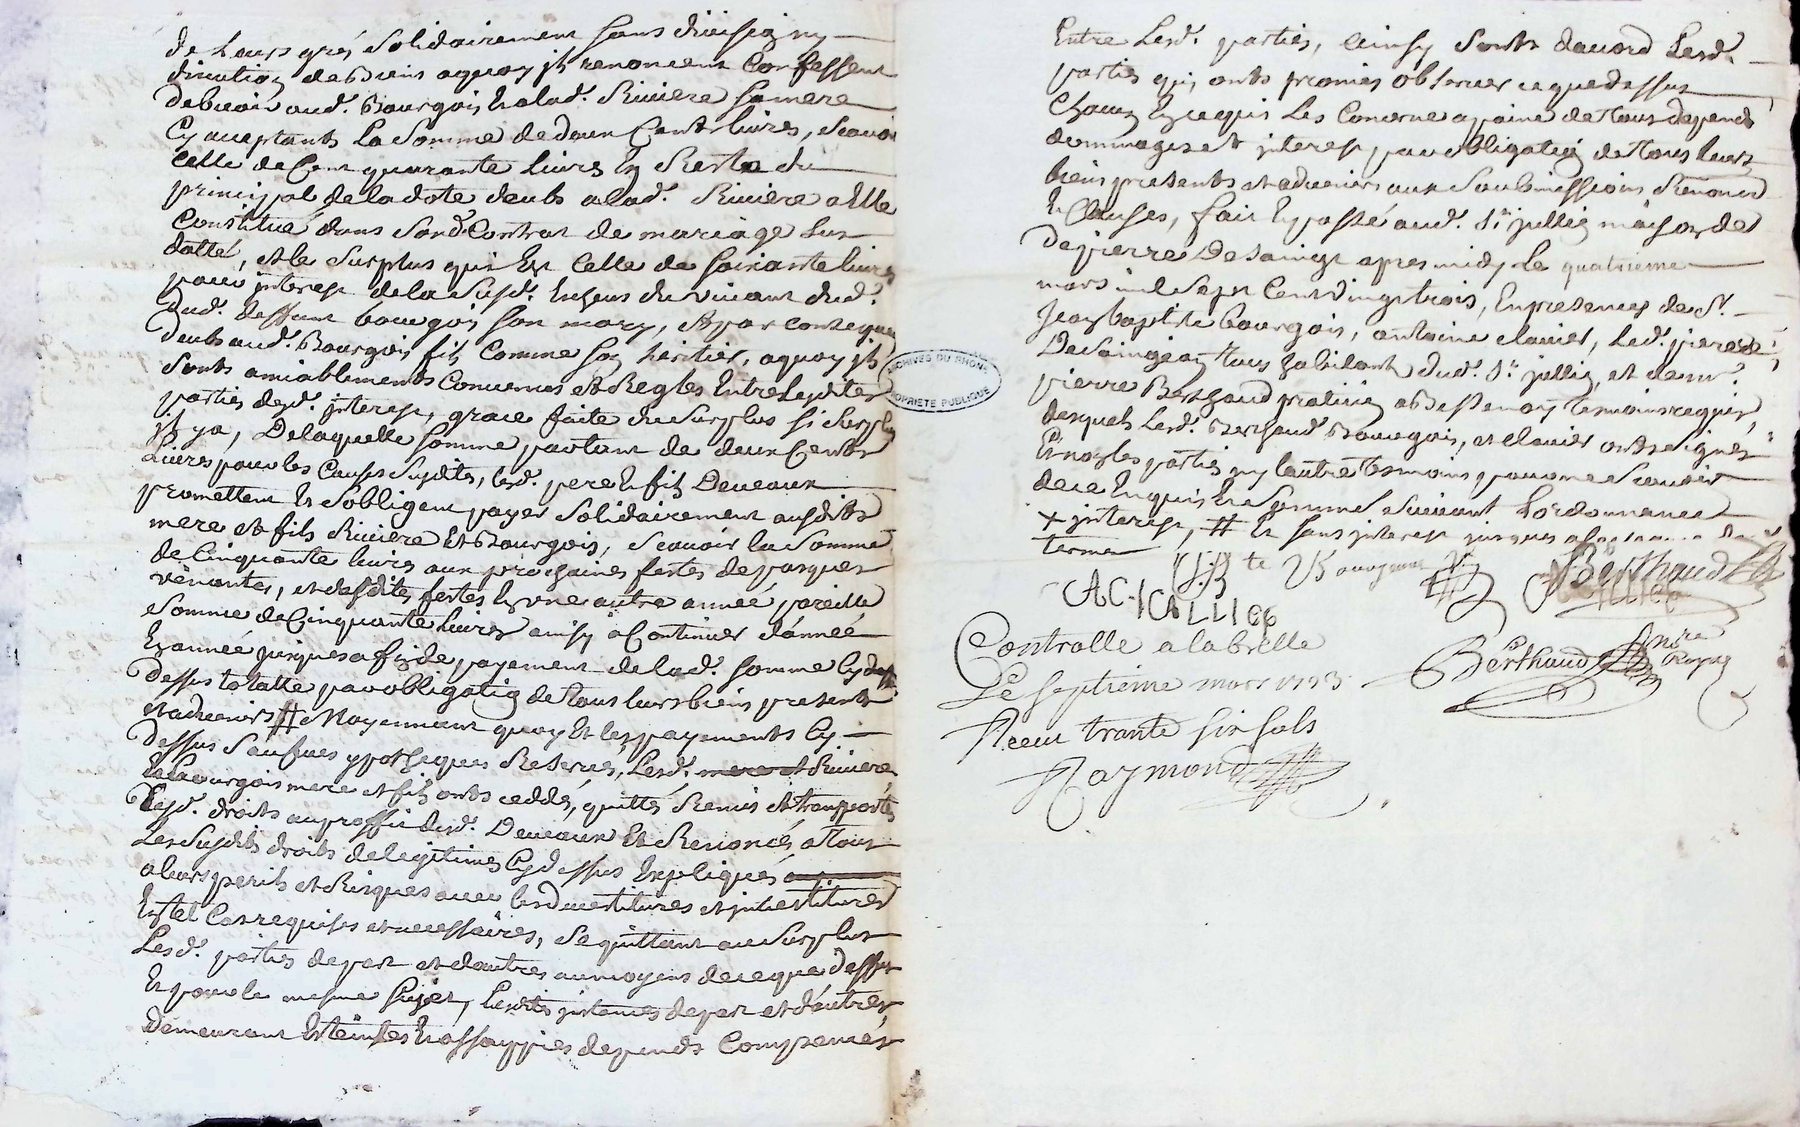 de leurs grés solidairement sans division ny
discution de biens aquoy ils renoncent confessent
debvoir aud. Bourgois Et a lad. Riviere sa mere
Cy acceptants la somme de deux Cents livres, scavoir
celle de Cent quarante livres En Reste du
principal de la dote deubs a lad. Riviere a Elle
Constitué dans sond. Contrat de mariage sus
datté, et le surplus qui Est Celle de soixante livres
pour interest de la susd. du vivant dud.
dud. deffunt bourgois son mary, Et par consequent
deubs aud. Bourgois fils Comme son heritier, aquoy ils
sonts amiablements Convenus et Regles Entre lesdites
parties desd. interest, grace faite du surplus si surplus
il y a, De laquelle somme partant de deux Cents
Livres pour les Causes susdites, lesd. pere Et fils Deveaux
promettent Et s'obligent payer solidairement ausdits
mere et fils Riviere Et Bourgois, scavoir la somme
de Cinquante livres aux prochaines festes de pasques
venantes, et ausdites festes En une autre année pareille
somme de Cinquante livres ainsy a Continuer d'année
En année jusques a fin de payement de lad. somme Cy dess
dessus totalle par obligation de tous leurs biens presents
et advenirs # Moyennant quoy Et les payements Cy
dessus saufues ypotheques Reserves, Lesd. mere et Riviere
Et bourgois mere et fils onts ceddé, quitté Remis et transportés
lesd. droits au proffit desd. Deveaux Et Renoncé a tous
Les susdits droits de legitimes Cy dessus Expliqués
a leurs perils et Risques avec les devestitures et investitures
En tel Cas requises et necessaires, se quittant au surplus
Lesd. parties de part et d'autres au moyens de ce que dessus
Et pour le mesme sujet, Lesdits instances de part et d'autres
Demeurant Esteintes Et assouppies depends Compensés
Entre Lesd. parties, Ainsy sonts d'acord Lesd.
parties qui onts promis observer ce que dessus
Chacun En ce qui Les Concerne a paine de tous depends
dommages et interest, par obligation de tous leurs
biens presents et advenirs aux soubmissions Renonces
Et Clauses, fait Et passé aud. St jullien maison de
De pierre Desainjean apres midy Le quatrieme
mars mil sept Cent vingt trois, En presences de Sr.
Jean baptiste bourgois, antoine clavier, Led. pierre de
Desainjean tous habitants dud. St. jullien, et de mr.
pierre Berthaud praticien a Bessenay temoins requis,
desquels Lesd. Berthaud Bourgois, et clavier onts signés
Et non les parties ny l'autre temoins pour ne scavoir
de ce Enquis Et sommé suivant Lordonnance
+ interest, # Et sans interest jusques a
terme
JB te Bourgeois
ACH CALLIER
Berthaud
Controlle a labrelle
Le septieme mars 1723
Receu trante six sols
Raymond
Berthaud nre
Royal
ARCHIVES DU RHONE
PROPRIÉTÉ PUBLIQUE